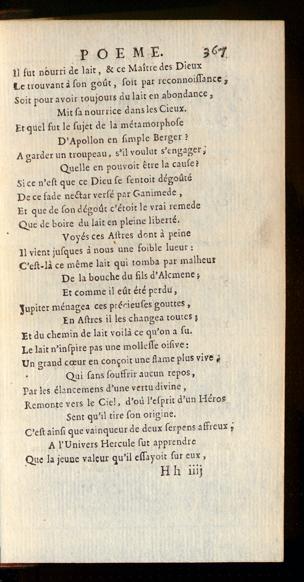 POEME. 367
Il fut nourri de lait, & ce Maître des Dieux
Le trouvant à son goût, soit par reconnoissance,
Soit pour avoir toujours du lait en abondance,
Mit sa nourrice dans les Cieux.
Et quel fut le sujet de la métamorphose
D'Apollon en simple Berger ?
A garder un troupeau, s'il voulut s'engager,
Quelle en pouvoit être la cause ?
Si ce n'est que ce Dieu se sentoit dégoûté
De ce fade nectar versé par Ganimede,
Et que de son dégoût c'étoit le vrai remede
Que de boire du lait en pleine liberté.
Voyés ces Astres dont à peine
Il vient jusques à nous une foible lueur :
C'est-là ce même lait qui tomba par malheur
De la bouche du fils d'Alcmene ;
Et comme il eût été perdu,
Jupiter ménagea ces précieuses gouttes,
En Astres il les changea toutes ;
Et du chemin de lait voilà ce qu'on a su.
Le lait n'inspire pas une mollesse oisive :
Un grand cœur en conçoit une flame plus vive,
Qui sans souffrir aucun repos,
Par les élancemens d'une vertu divine,
Remonte vers le Ciel, d'où l'esprit d'un Héros
Sent qu'il tire son origine.
C'est ainsi que vainqueur de deux serpens affreux,
A l'Univers Hercule fut apprendre
Que la jeune valeur qu'il essayoit sur eux,
H h iiij